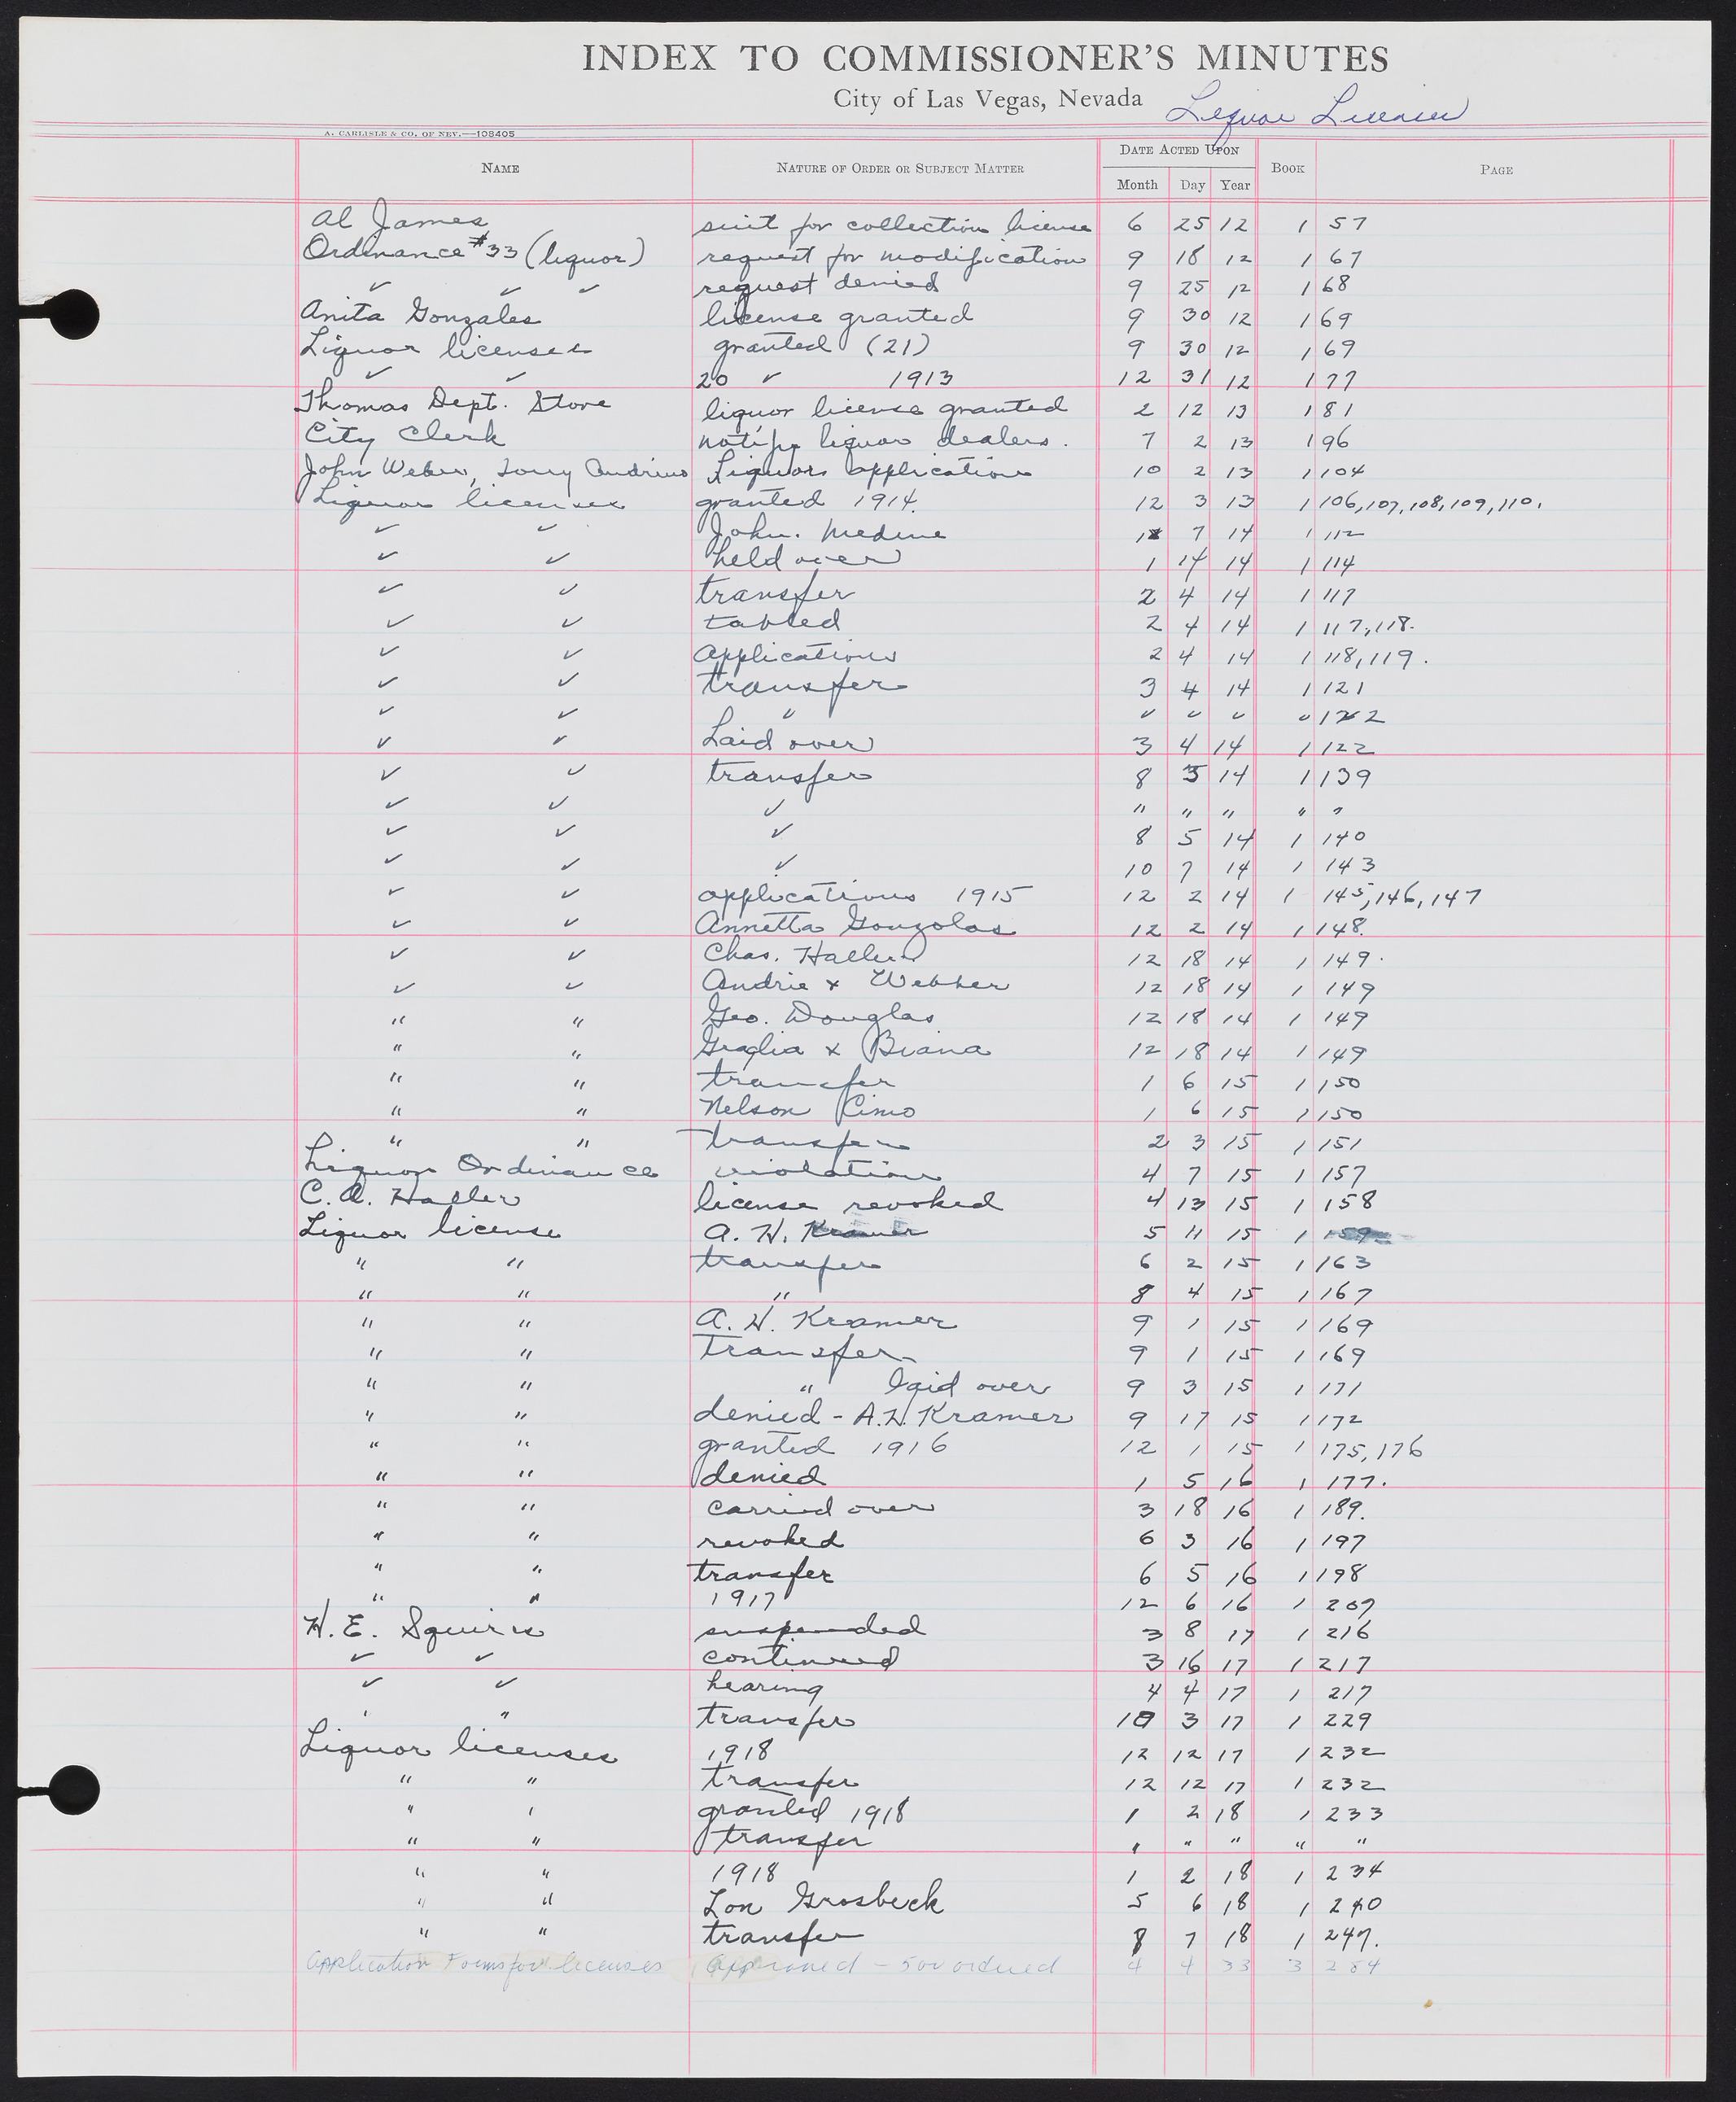 INDEX TO COMMISSIONER'S MINUTES
City of Las Vegas, Nevada Liquor Licenses
A. CARLISLE & CO. OF NEV.—108405
NAME NATURE OF ORDER OR SUBJECT MATTER DATE ACTED UPON BOOK PAGE
Month Day Year
Al James suit for collection license 6 25 12 1 57
Ordinance #33 (liquor) request for modification 9 18 12 1 67
✓ ✓ ✓ request denied 9 25 12 1 68
Anita Gonzales license granted 9 30 12 1 69
Liquor licenses granted (21) 9 30 12 1 69
✓ ✓ 20 ✓ 1913 12 31 12 1 77
Thomas Dept. Store liquor license granted 2 12 13 1 81
City Clerk notify liquor dealers. 7 2 13 1 96
John Weber, Tony Andrino Liquors application 10 2 13 1 104
Liquor licenses granted 1914. 12 3 13 1 106, 107, 108, 109, 110.
✓ ✓ John. Medine 1 7 14 1 112
✓ ✓ held over 1 14 14 1 114
✓ ✓ transfer 2 4 14 1 117
✓ ✓ tabled 2 4 14 1 117, 118.
✓ ✓ Applications 2 4 14 1 118, 119.
✓ ✓ transfer 3 4 14 1 121
✓ ✓ ✓ ✓ ✓ ✓ ✓ 122
✓ ✓ Laid over 3 4 14 1 122
✓ ✓ transfer 8 5 14 1 139
✓ ✓ ✓ " " " " "
✓ ✓ ✓ 8 5 14 1 140
✓ ✓ ✓ 10 7 14 1 143
✓ ✓ applications 1915 12 2 14 1 145, 146, 147
✓ ✓ Annetta Gonzolas 12 2 14 1 148.
✓ ✓ Chas. Haller 12 18 14 1 149.
✓ ✓ Andrie & Webber 12 18 14 1 149
" " Geo. Douglas 12 18 14 1 149
" " Graglia & Biana 12 18 14 1 149
" " transfer 1 6 15 1 150
" " Nelson Cimo 1 6 15 1 150
" " transfer 2 3 15 1 151
Liquor Ordinance violation 4 7 15 1 157
C. A. Haller license revoked 4 13 15 1 158
Liquor license A. H. Kramer 5 11 15 1 159
" " transfer 6 2 15 1 163
" " " 8 4 15 1 167
" " A. H. Kramer 9 1 15 1 169
" " Transfer 9 1 15 1 169
" " " laid over 9 3 15 1 171
" " denied - A.H. Kramer 9 17 15 1 172
" " granted 1916 12 1 15 1 175, 176
" " denied 1 5 16 1 177.
" " carried over 3 18 16 1 189.
" " revoked 6 3 16 1 197
" " transfer 6 5 16 1 198
" " 1917 12 6 16 1 209
H. E. Squires suspended 3 8 17 1 216
✓ ✓ continued 3 16 17 1 217
✓ ✓ hearing 4 4 17 1 217
' " transfer 10 3 17 1 229
Liquor licenses 1918 12 12 17 1 232
" " transfer 12 12 17 1 232
" ' granted 1918 1 2 18 1 233
" " transfer " " " " "
" " 1918 1 2 18 1 234
" " Lon Grosbeck 5 6 18 1 240
" " transfer 8 7 18 1 247.
Application Forms for licenses Approved - 500 ordered 4 4 33 3 284